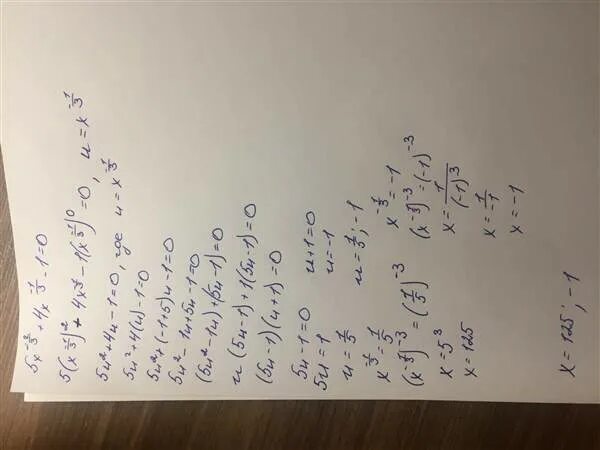 5x^{-2/3} + 4x^{-1/3} - 1 = 0
5(x^{-1/3})^2 + 4x^{-1/3} - 1(x^{-1/3})^0 = 0, u = x^{-1/3}
5u^2 + 4u - 1 = 0, где u = x^{-1/3}
5u^2 + 4(u) - 1 = 0
5u^2 + (-1+5)u - 1 = 0
5u^2 - 1u + 5u - 1 = 0
(5u^2 - 1u) + (5u - 1) = 0
u(5u - 1) + 1(5u - 1) = 0
(5u - 1)(u + 1) = 0
5u - 1 = 0 u + 1 = 0
5u = 1 u = -1
u = 1/5 u = 1/5; -1
x^{-1/3} = 1/5 x^{-1/3} = -1
(x^{-1/3})^{-3} = (1/5)^{-3} (x^{-1/3})^{-3} = (-1)^{-3}
x = 5^3 x = 1/(-1)^3
x = 125 x = 1/-1
x = -1
x = 125; -1